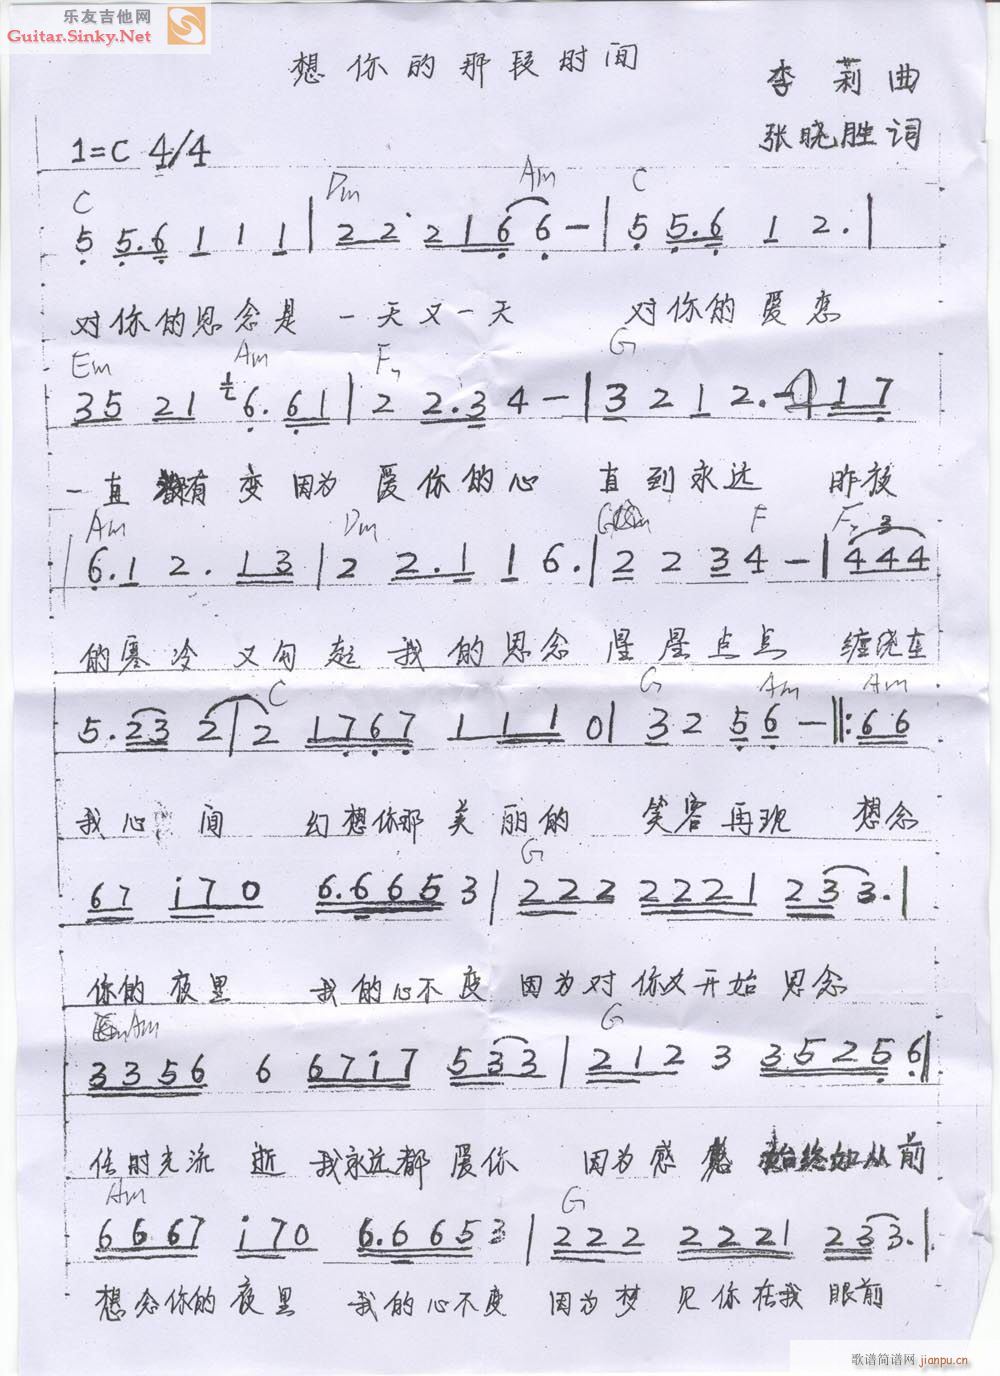 乐友吉他网
Guitar.Sinky.Net
想你的那段时间
李莉曲
张晓胜词
1=C 4/4
C Dm Am C
5 5.6 1 1 1 | 2 2 2 1 6 6 - | 5 5.6 1 2. |
对你的思念是 一天又一天 对你的爱恋
Em Am F G
3 5 2 1 6. 6 1 | 2 2.3 4 - | 3 2 1 2. - | 1 7
一直 没有变 因为爱你的心 直到永远 昨夜
Am Dm G F F 3
| 6.1 2. 1 3 | 2 2.1 1 6. | 2 2 3 4 - | 4 4 4
的寒冷 又勾起 我的思念 星星点点 缠绕在
C G Am Am
5. 2 3 2 | 2 1 7 6 7 1 1 1 0 | 3 2 5 6 - ‖: 6 6
我心间 幻想你那美丽的 笑容再现 想念
G
6 7 i 7 0 6.6 6 5 3 | 2 2 2 2 2 2 1 2 3 3. |
你的夜里 我的心不变 因为对你又开始思念
Am G
3 3 5 6 6 6 7 i 7 5 3 3 | 2 1 2 3 3 5 2 5 6 ‖
任时光流逝 我永远都爱你 因为感觉 始终如从前
Am G
6 6 6 7 i 7 0 6.6 6 5 3 | 2 2 2 2 2 2 1 2 3 3. |
想念你的夜里 我的心不变 因为梦见你在我眼前
歌谱简谱网 jianpu.cn